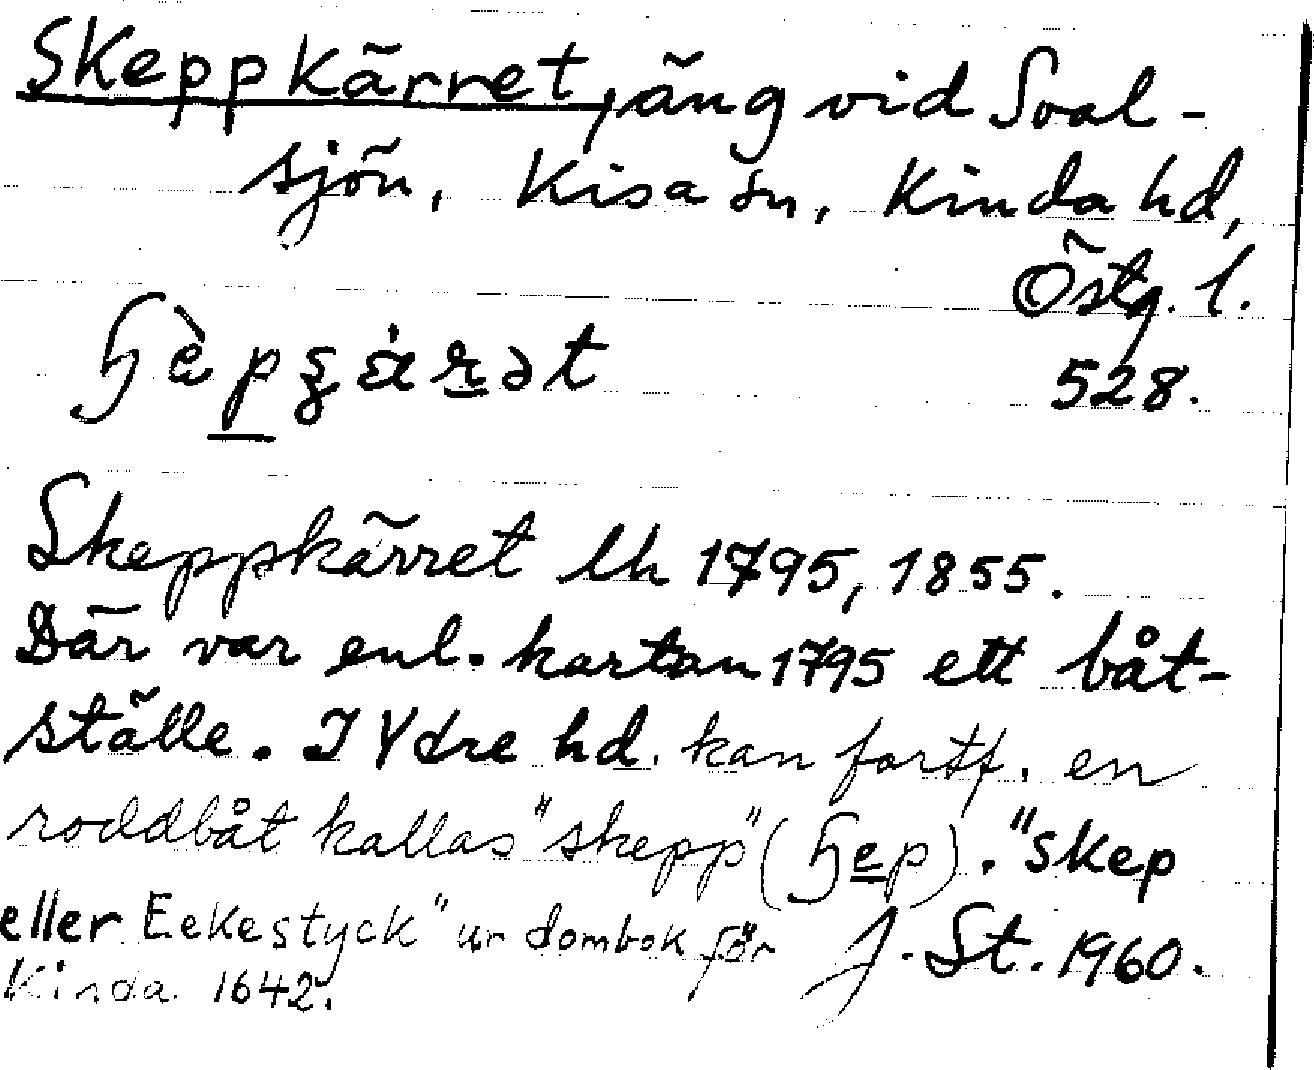 Skeppkärret, äng vid Sval-
sjön, Kisa sn, Kinda hd,
Östg. l.
528.
Skeppkärret lh 1795, 1855.
Där var enl. kartan 1795 ett båt-
ställe. I Ydre hd. kan fortf. en
roddbåt kallas "skepp" ( ). "skep
eller Eekestyck" ur dombok för
Kinda 1642.
J. St. 1960.